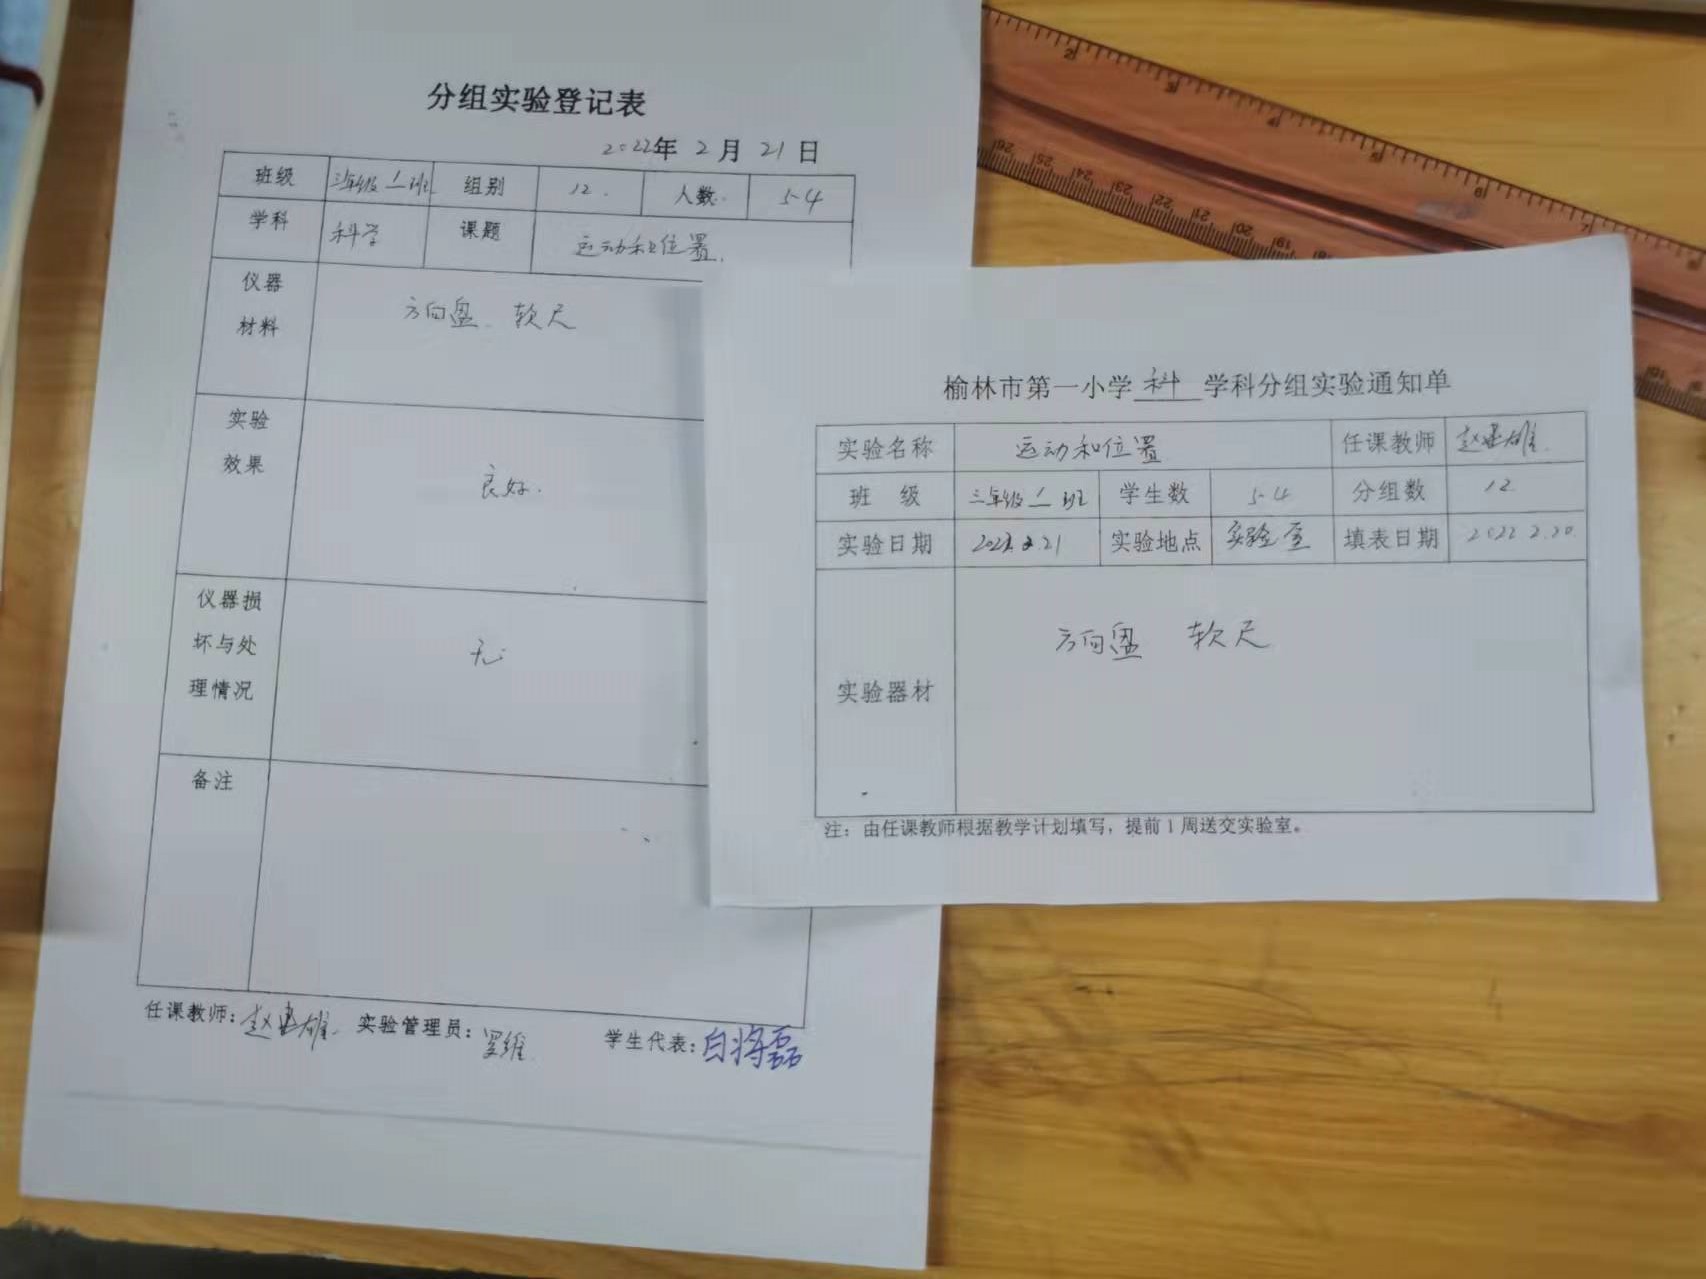 分组实验登记表
2022年 2月 21日
班级 三年级1班 组别 12. 人数 54
学科 科学 课题 运动和位置.
仪器材料 方向盘 软尺
实验效果 良好.
仪器损坏与处理情况 无
备注
任课教师: 赵建雄 实验管理员: 罗维 学生代表: 白将磊
榆林市第一小学科学科分组实验通知单
实验名称 运动和位置 任课教师 赵建雄
班 级 三年级1班 学生数 54 分组数 12
实验日期 2022.2.21 实验地点 实验室 填表日期 2022.2.20.
实验器材 方向盘 软尺
注：由任课教师根据教学计划填写，提前1周送交实验室。
26 25 24 23 22 21 20 19 18